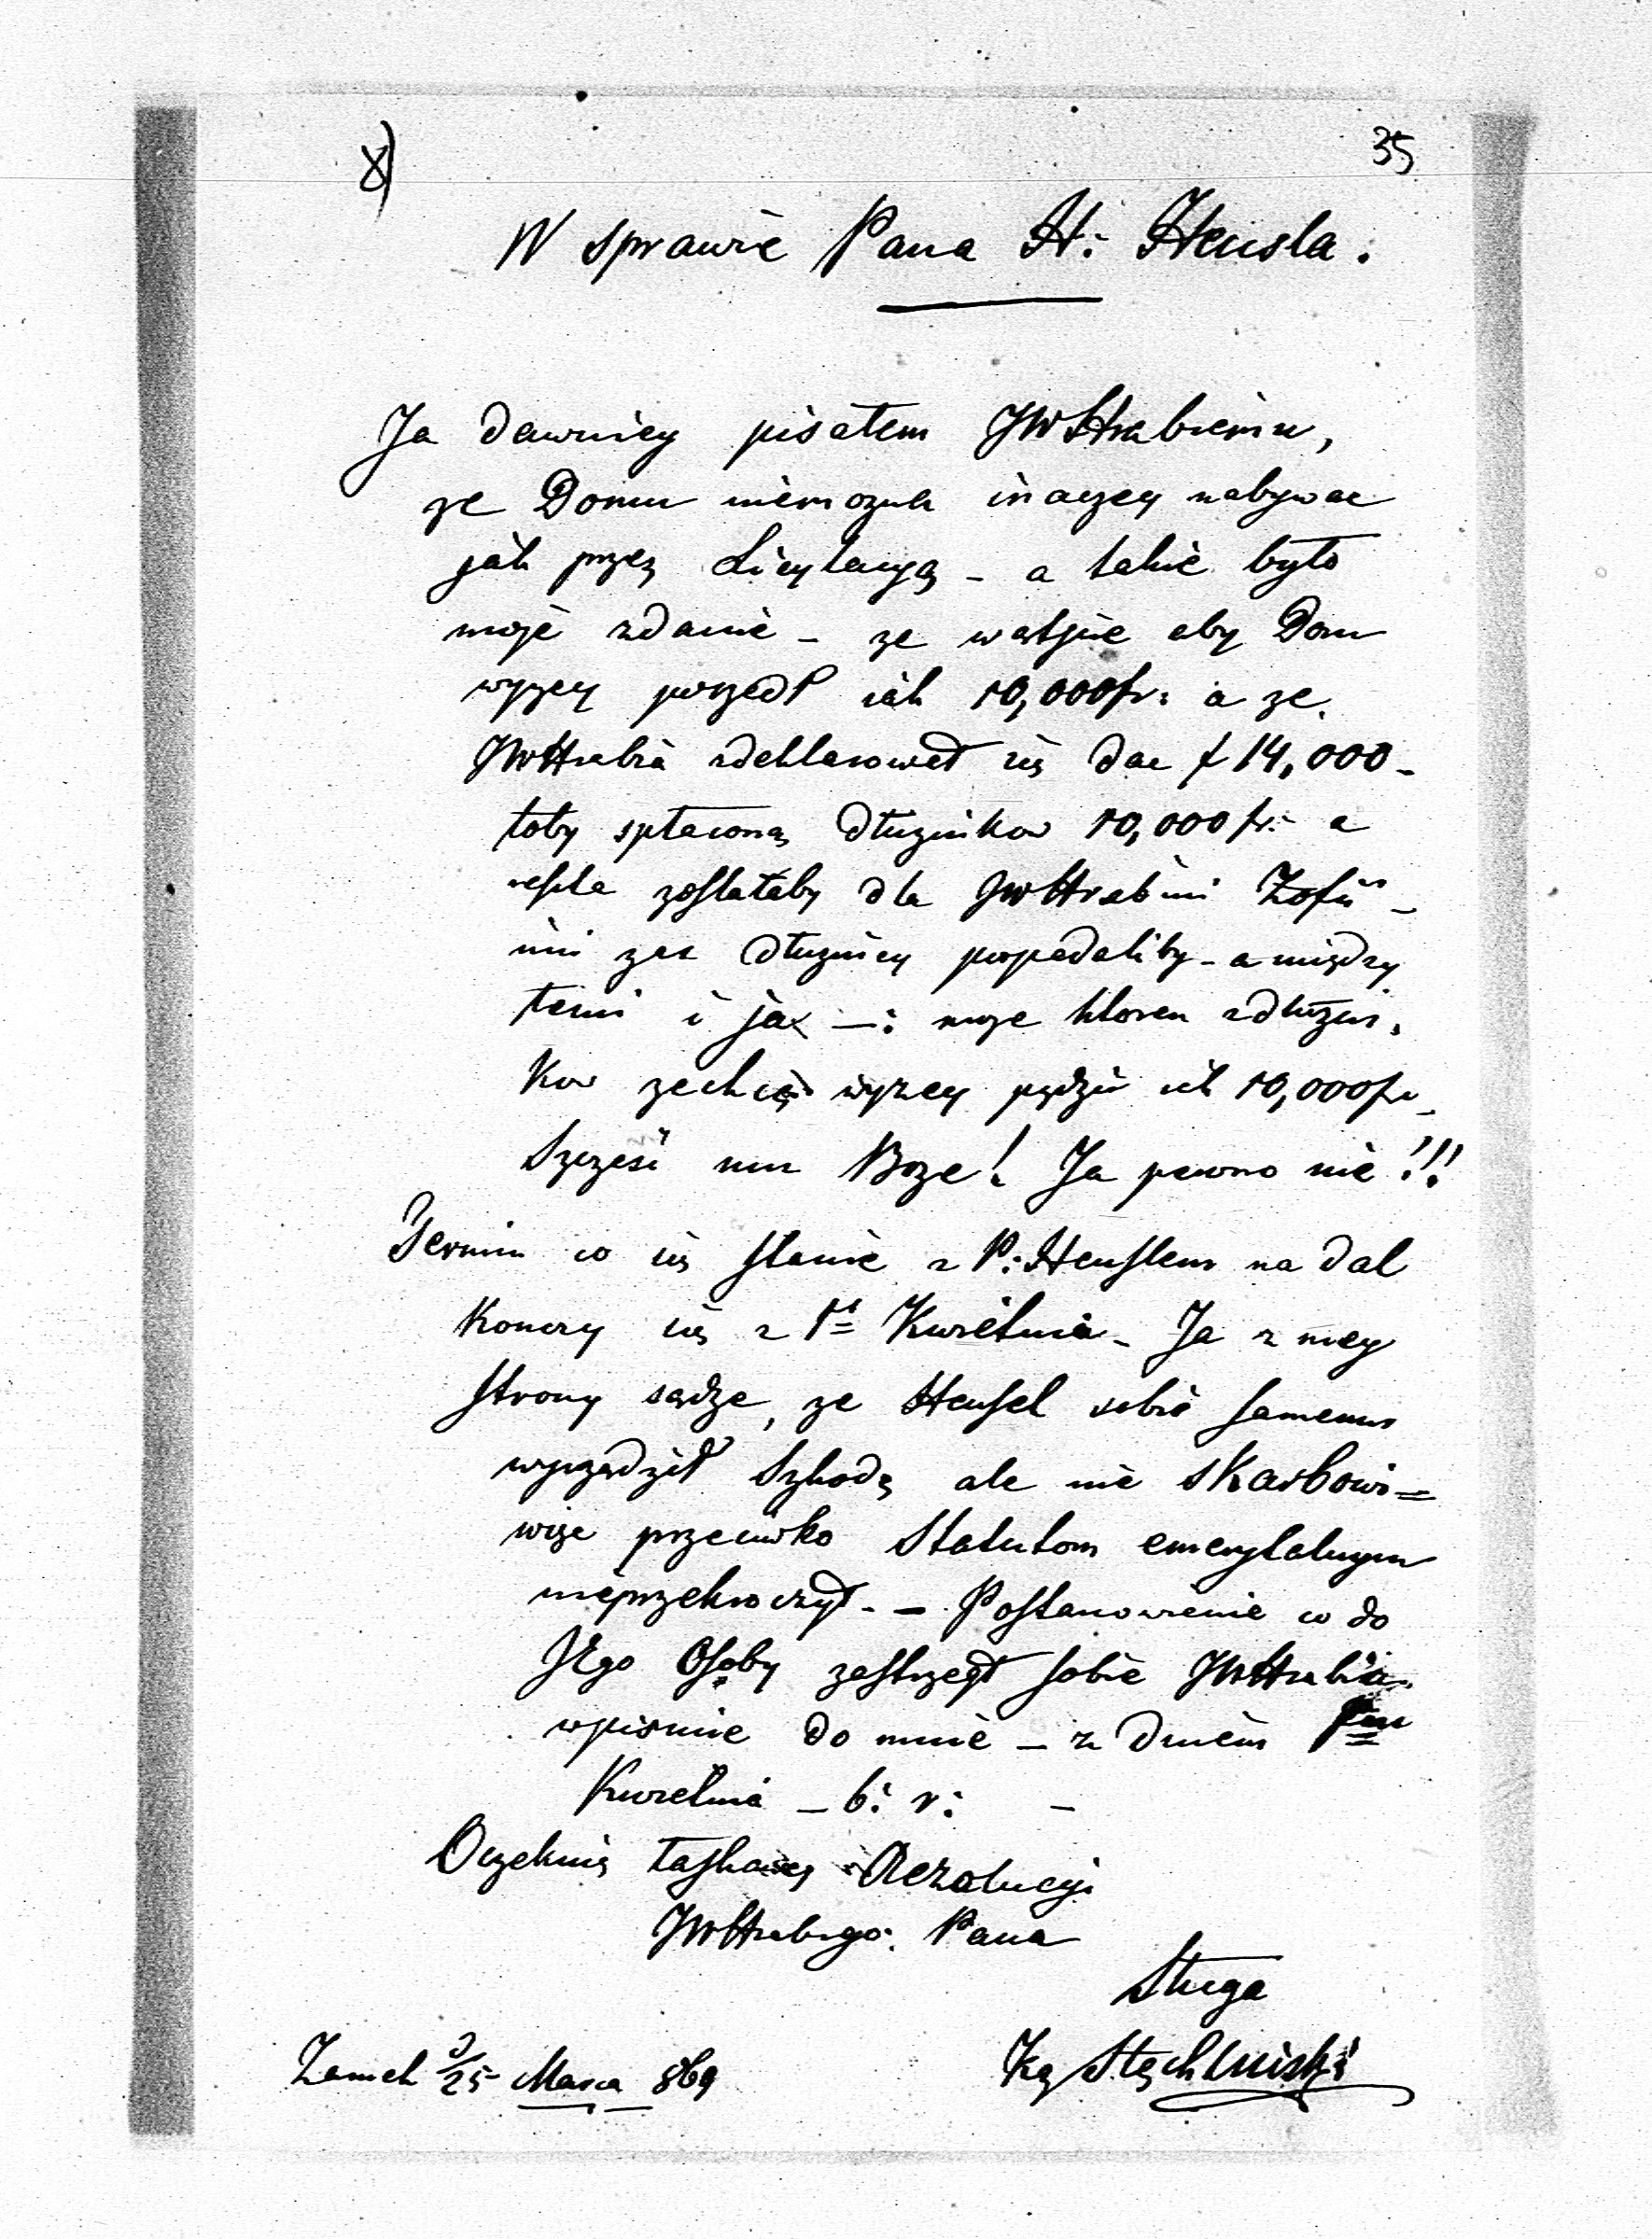 8) 35
W sprawie Pana H: Heusla.
Ja dawniey pisałem JWHrabiemu,
ze Domu niemozna inaczey nabywac
jak przez Licytacyą - a takie było
moje zdanie - ze wątpie aby Dom
wyzey poszedł iak 10,000 fr: a ze
JWHrabia zdeklarował się dac f 14,000 -
toby spłacono Dłuznikow 10,000 fr: a
reszta zostałaby dla JWHrabini Zofii -
inni zas dłuznicy popadaliby - a między
temi i ja - : moze ktoren z dłuzni.
kow zechce wyzey pędzic ik 10,000 fr -
Szczęść mu Boze! Ja pewno nie!!!
Termin co się stanie z P: Heuslem na dal
Konczy się z 1= Kwietnia - Ja z mey
strony sądze, ze Heusel sobie samemu
wyrządził Szkodę ale nie skarbowi =
więc przeciwko Statutom emerytalnym
nieprzekroczył - - Postanowienie co do
Jego Osoby zastrzegł sobie JWHrabia
w piśmie do mnie - z Dniem
Kwietnia - b: r: -
Oczekuię łaskawey Rezolucyi
JWHrabiego Pana
Sługa
Zamek 25 Marca 869